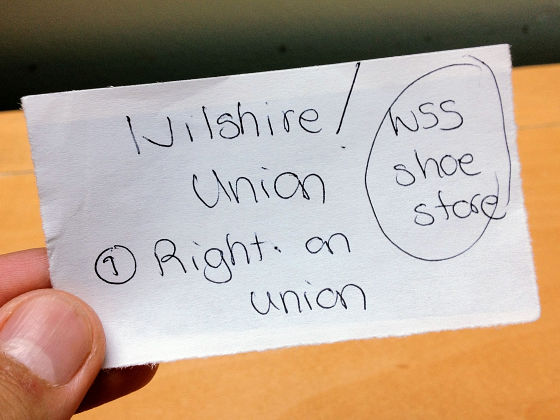 Wilshire/
Union
① Right. on
union
WSS
shoe
store